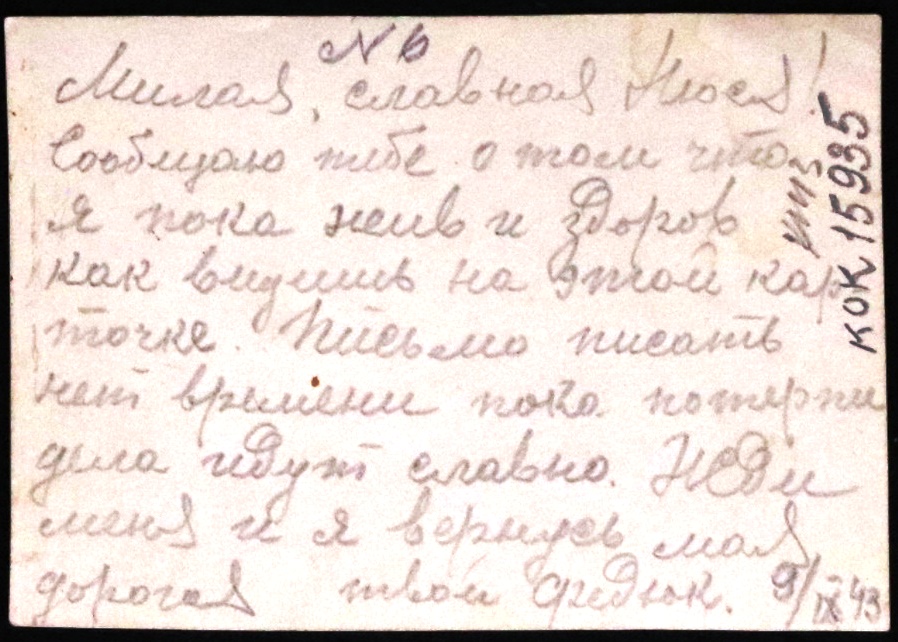 N 6
Милая, славная Нюся!
Сообщаю тебе о том что
я пока жив и здоров
как видишь на этой кар
точке. Письмо писать
нет времени пока потерпи
дела идут славно. Жди
меня и я вернусь моя
дорогая твой Федюк. 9/IX 43
КОК 15935